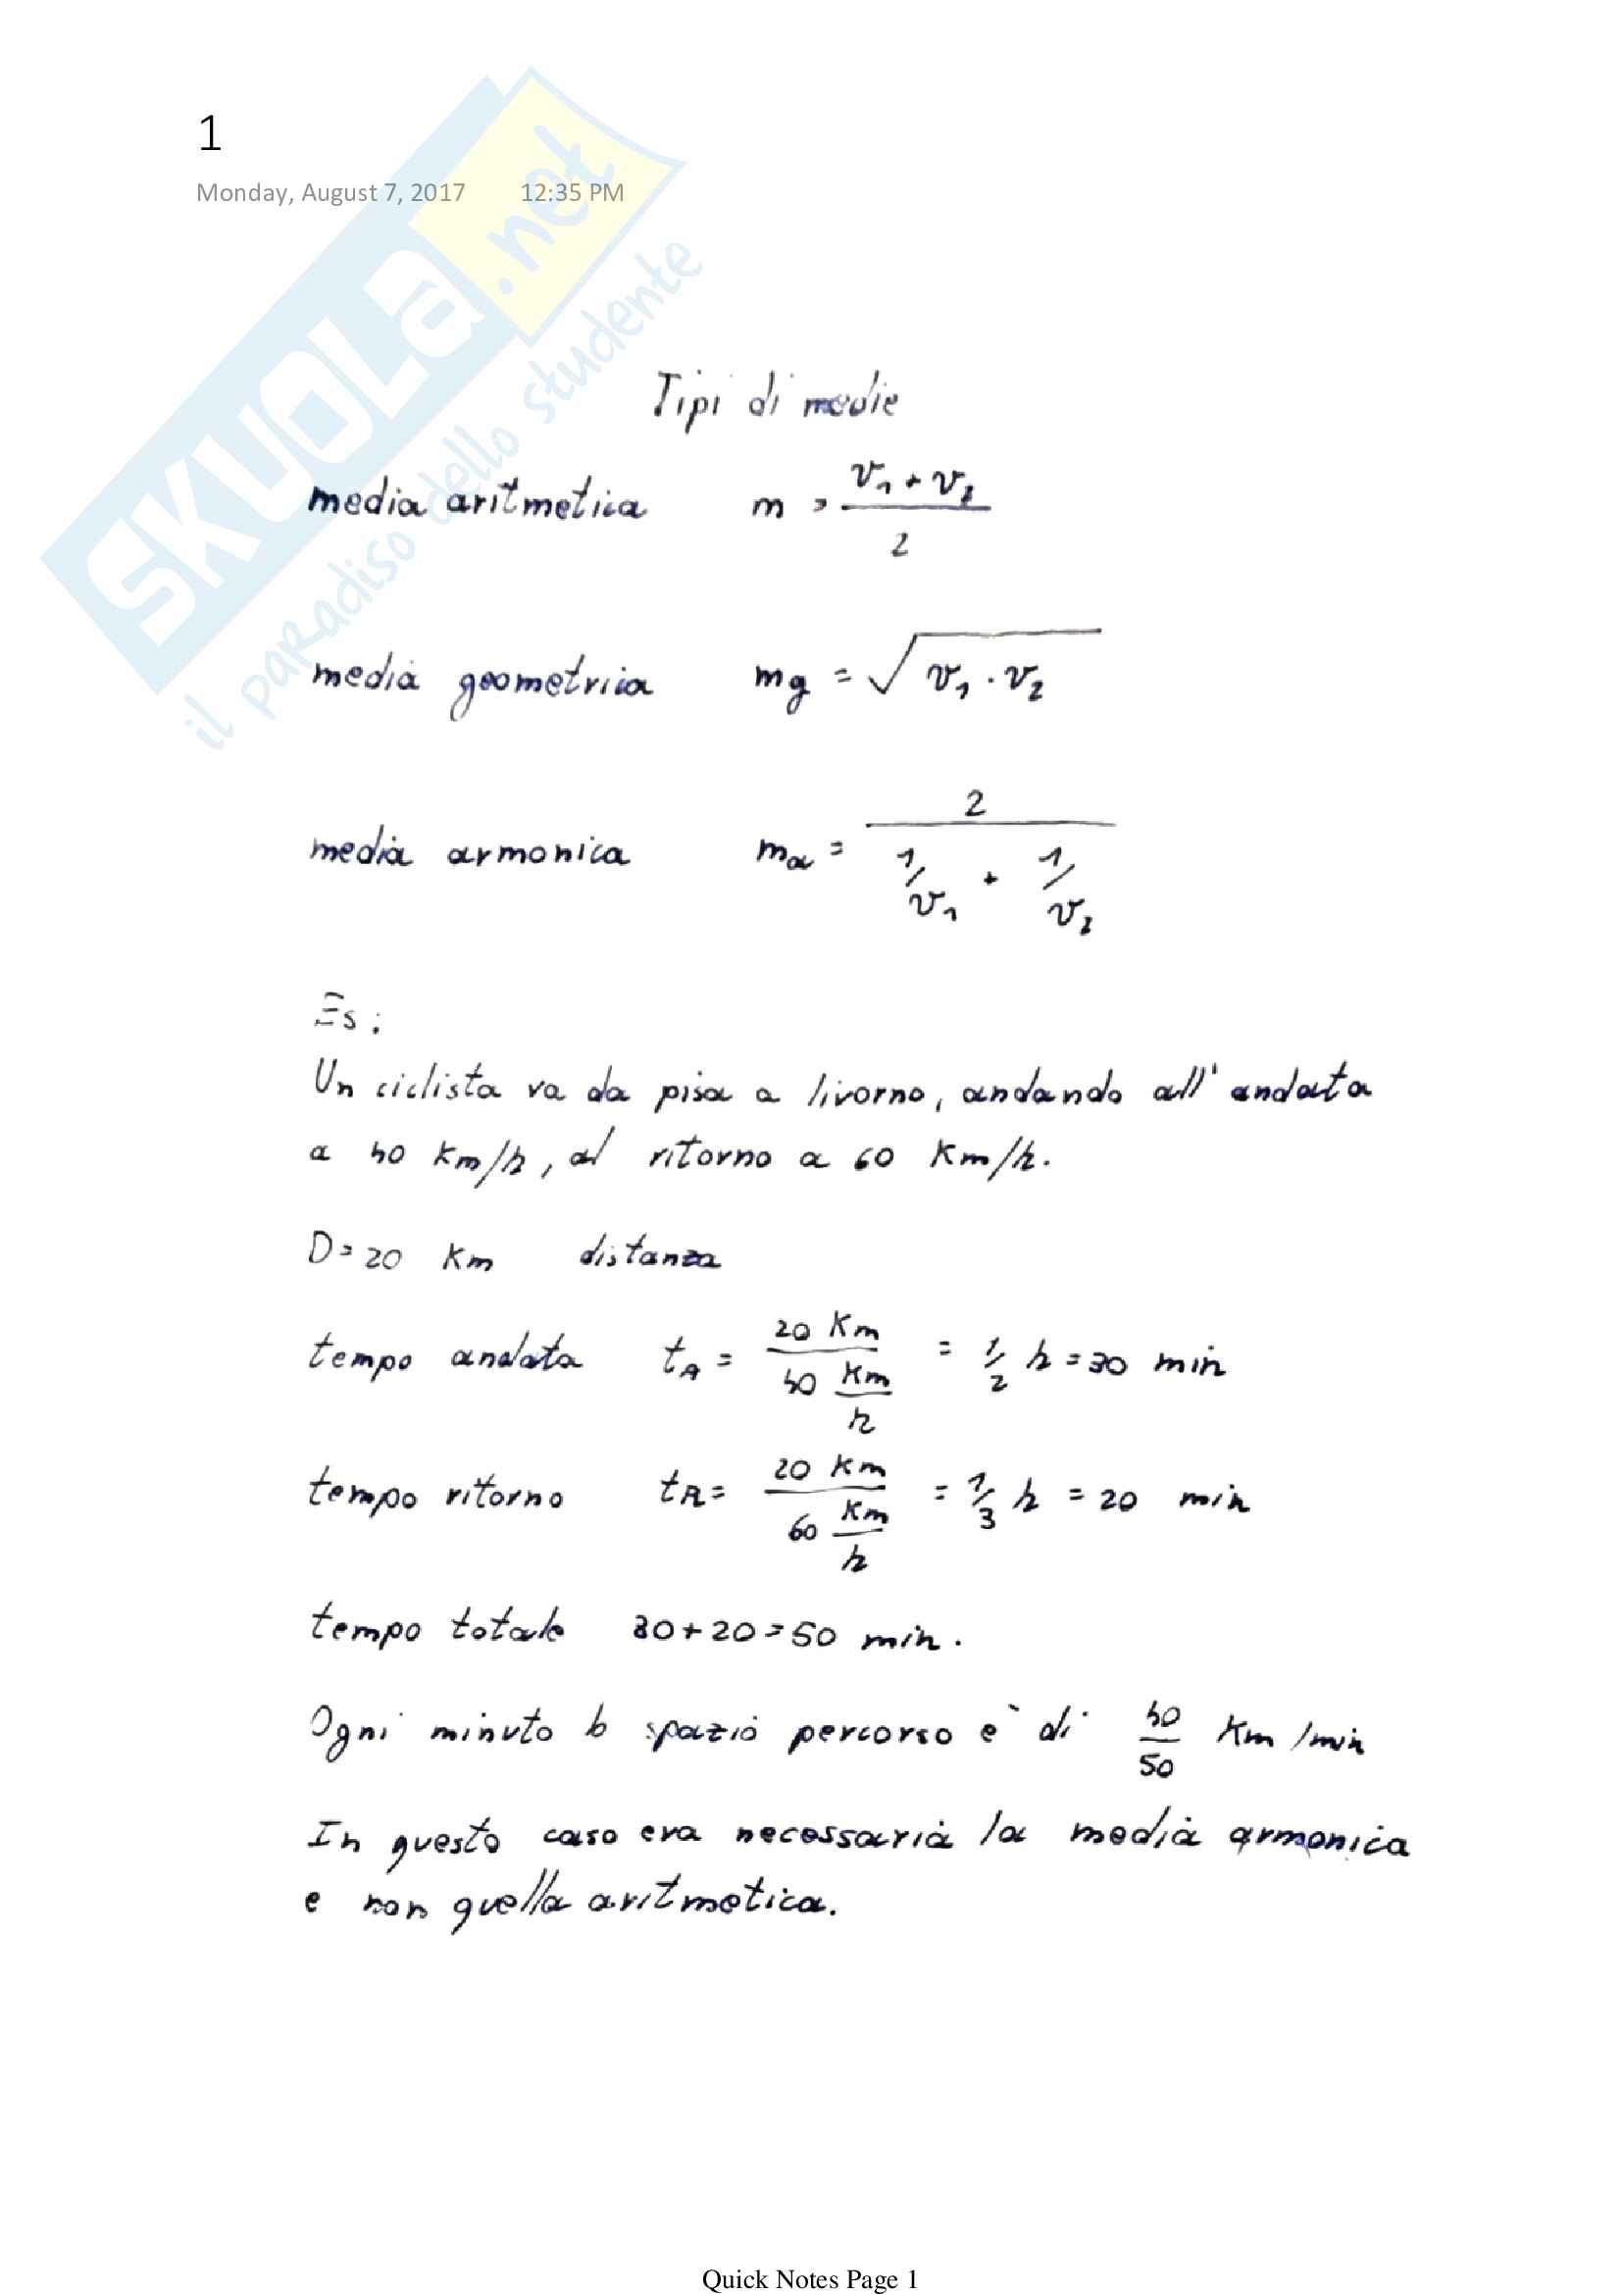 1
Monday, August 7, 2017 12:35 PM
SKUOLa.net
il paradiso dello studente
Tipi di medie
media aritmetica m = (v₁ + v₂)/2
media geometrica mg = √(v₁ · v₂)
media armonica mₐ = 2/(1/v₁ + 1/v₂)
Es:
Un ciclista va da pisa a livorno, andando all'andata
a 40 Km/h, al ritorno a 60 Km/h.
D = 20 Km distanza
tempo andata t_A = 20 Km / 40 Km/h = 1/2 h = 30 min
tempo ritorno t_R = 20 Km / 60 Km/h = 1/3 h = 20 min
tempo totale 30+20=50 min.
Ogni minuto lo spazio percorso e` di 40/50 Km/min
In questo caso era necessaria la media armonica
e non quella aritmetica.
Quick Notes Page 1